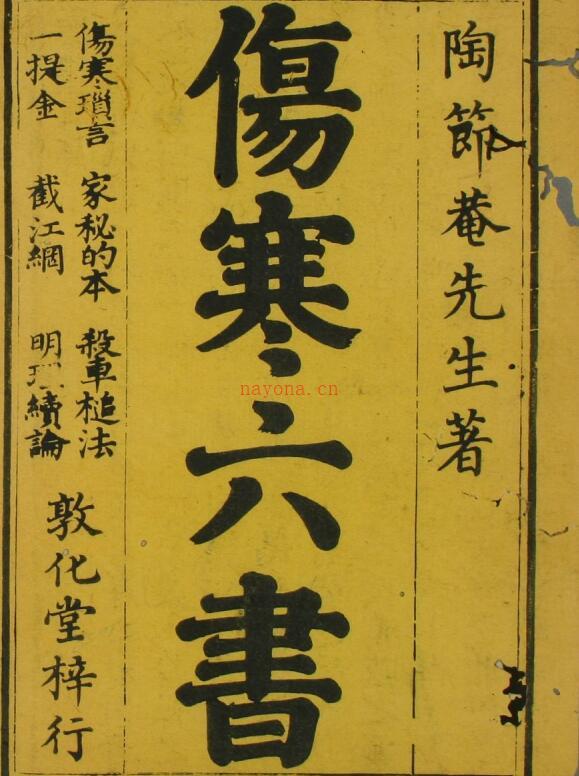 陶節菴先生著
傷寒六書
傷寒瑣言 家秘的本 殺車槌法
一提金 截江網 明理續論
敦化堂梓行
nayona.cn